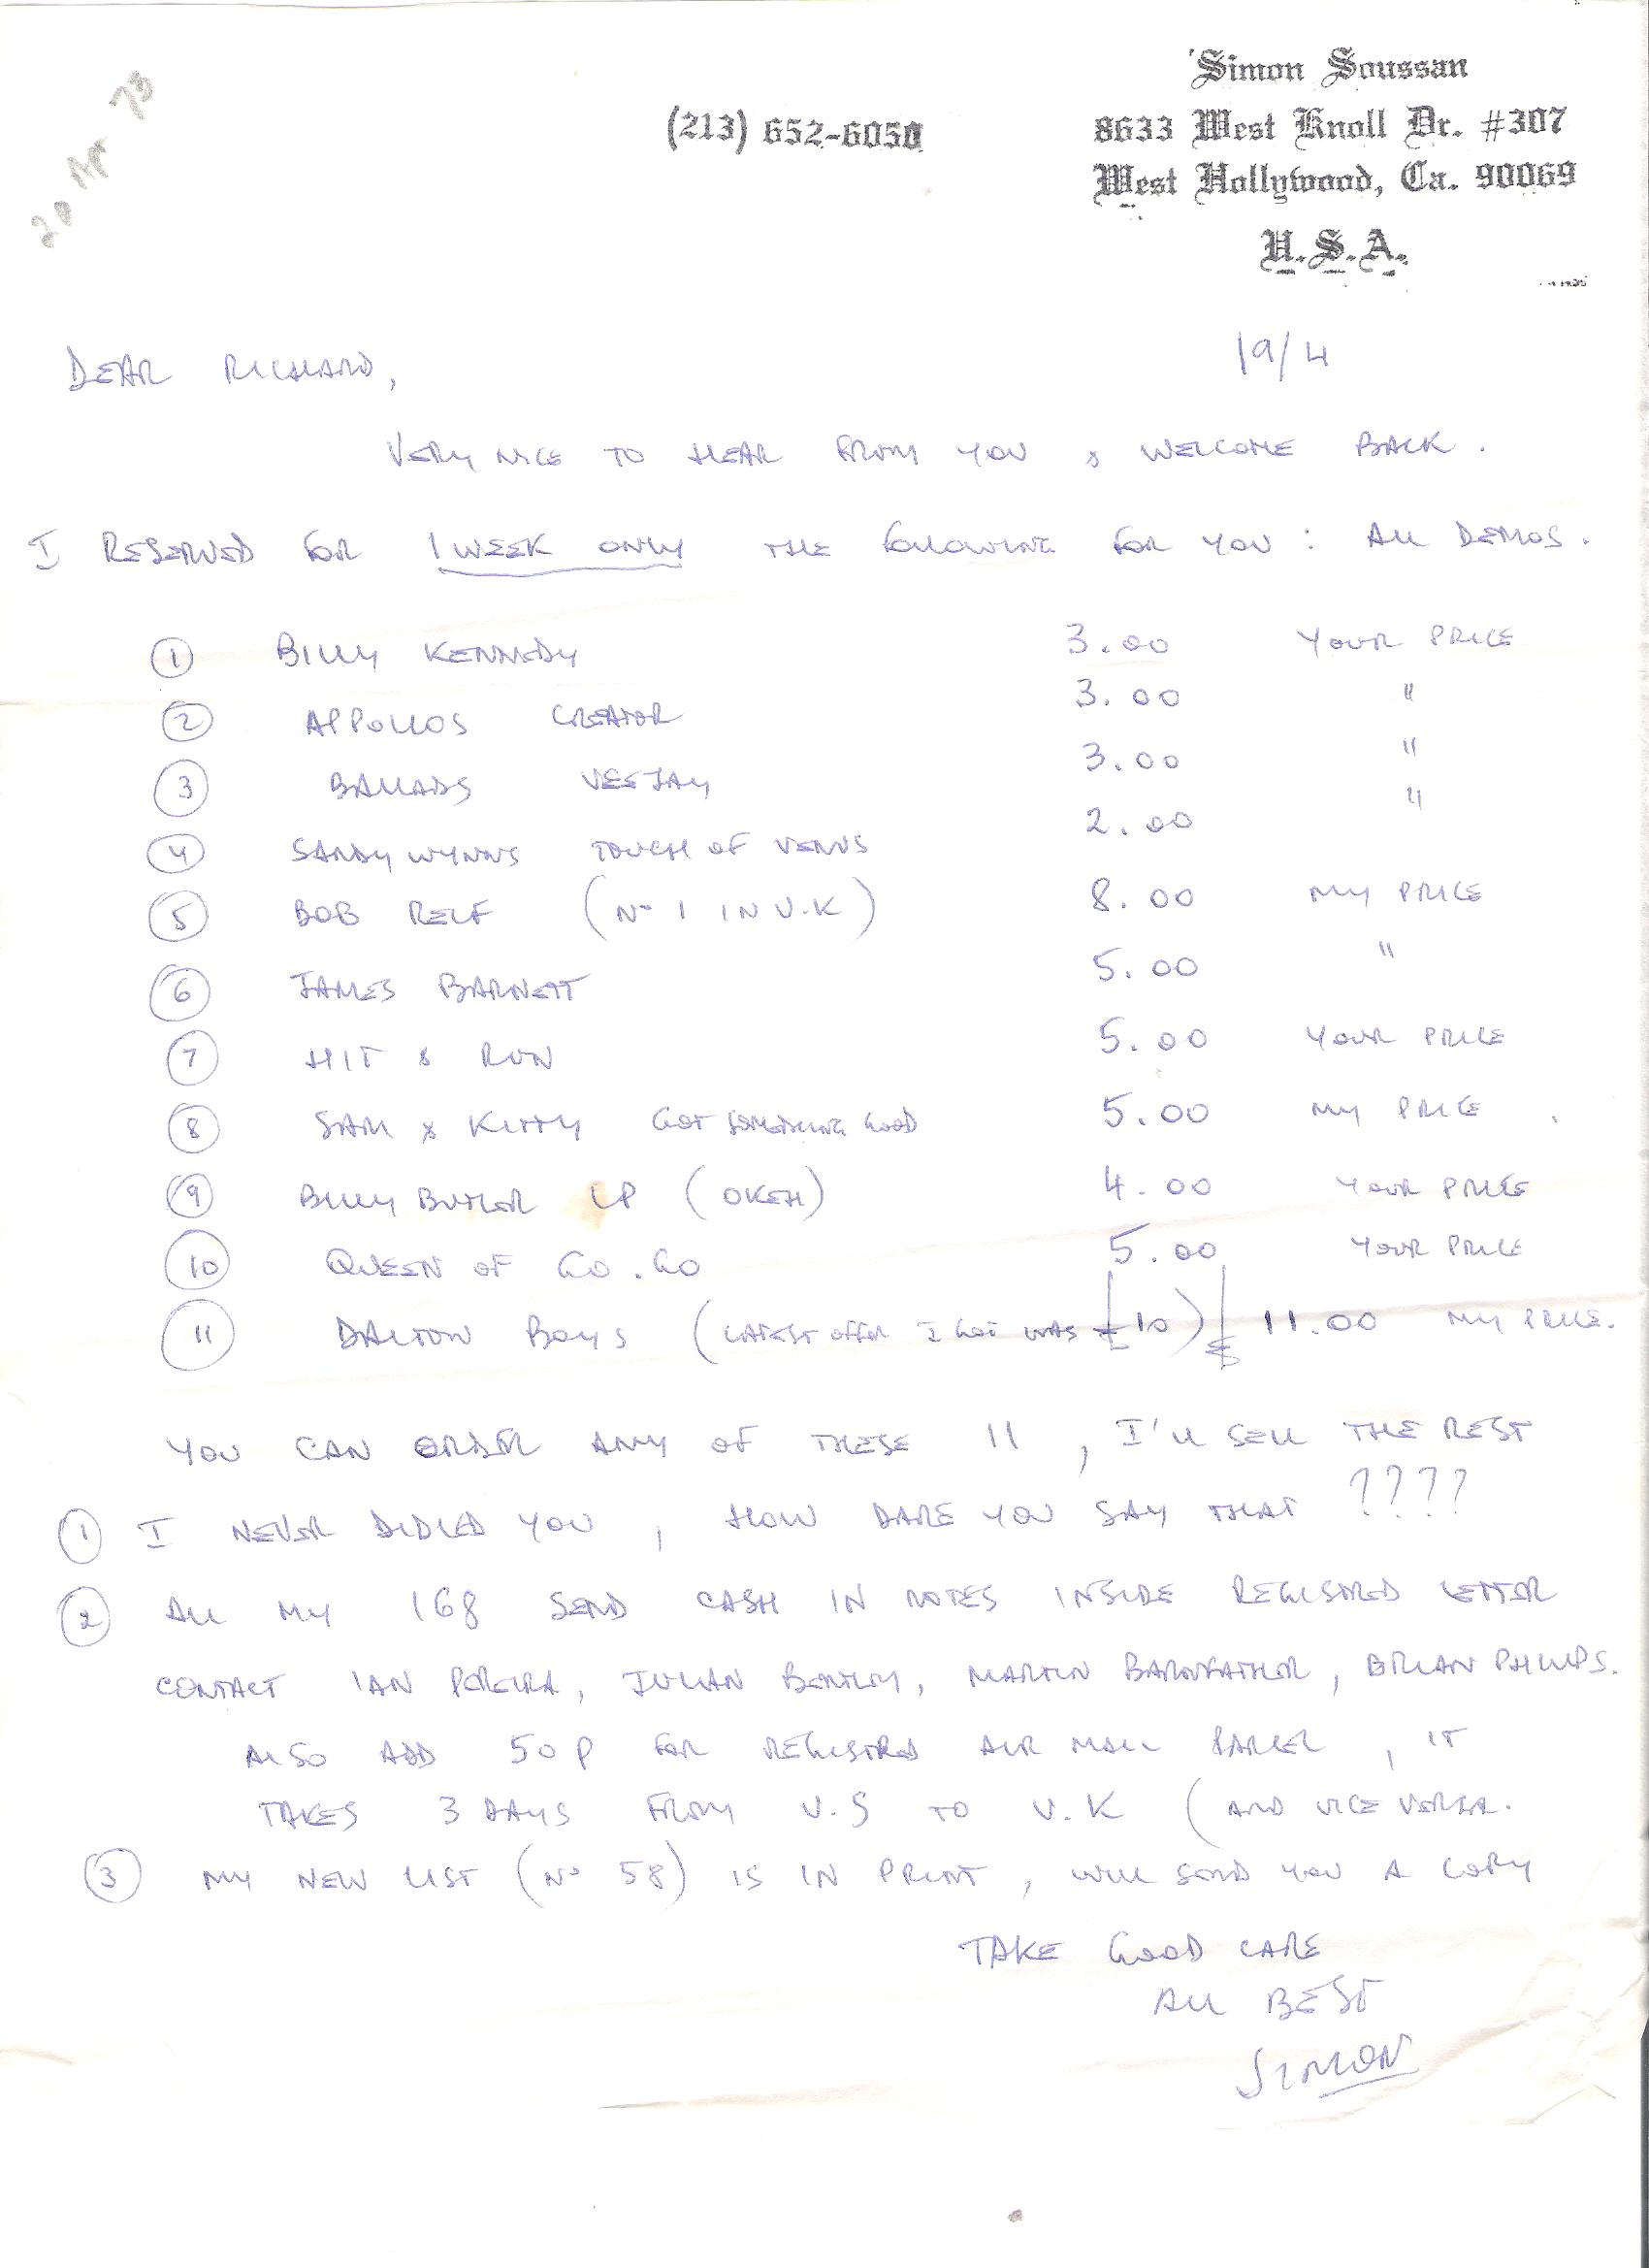 20 Apr 73
Simon Soussan
(213) 652-6050
8633 West Knoll Dr. #307
West Hollywood, Ca. 90069
U.S.A.
19/4
DEAR RICHARD,
VERY NICE TO HEAR FROM YOU & WELCOME BACK.
I RESERVED FOR 1 WEEK ONLY THE FOLLOWING FOR YOU : ALL DEMOS.
1 BILLY KENNEDY 3.00 YOUR PRICE
2 APPOLLOS CREATOR 3.00 "
3 BALLADS VEEJAY 3.00 "
4 SANDY WYNNS TOUCH OF VENUS 2.00 "
5 BOB RELF (No 1 IN U.K) 8.00 MY PRICE
6 JAMES BARNETT 5.00 "
7 HIT & RUN 5.00 YOUR PRICE
8 SAM & KITTY GOT SOMETHING GOOD 5.00 MY PRICE.
9 BILLY BUTLER LP (OKEH) 4.00 YOUR PRICE
10 QUEEN OF GO.GO 5.00 YOUR PRICE
11 DALTON BOYS (LATEST OFFER I GOT WAS £10) £ 11.00 MY PRICE.
YOU CAN ORDER ANY OF THESE 11, I'LL SELL THE REST
1 I NEVER DIDLED YOU, HOW DARE YOU SAY THAT ????
2 ALL MY 168 SEND CASH IN NOTES INSIDE REGISTRED LETTER
CONTACT IAN PEREIRA, JULIAN BENTLEY, MARTIN BARNFATHER, BRIAN PHILIPS.
ALSO ADD 50P FOR REGISTRD AIR MAIL PARCEL, IT
TAKES 3 DAYS FROM U.S TO U.K (AND VICE VERSA.
3 MY NEW LIST (No 58) IS IN PRINT, WILL SEND YOU A COPY
TAKE GOOD CARE
ALL BEST
SIMON